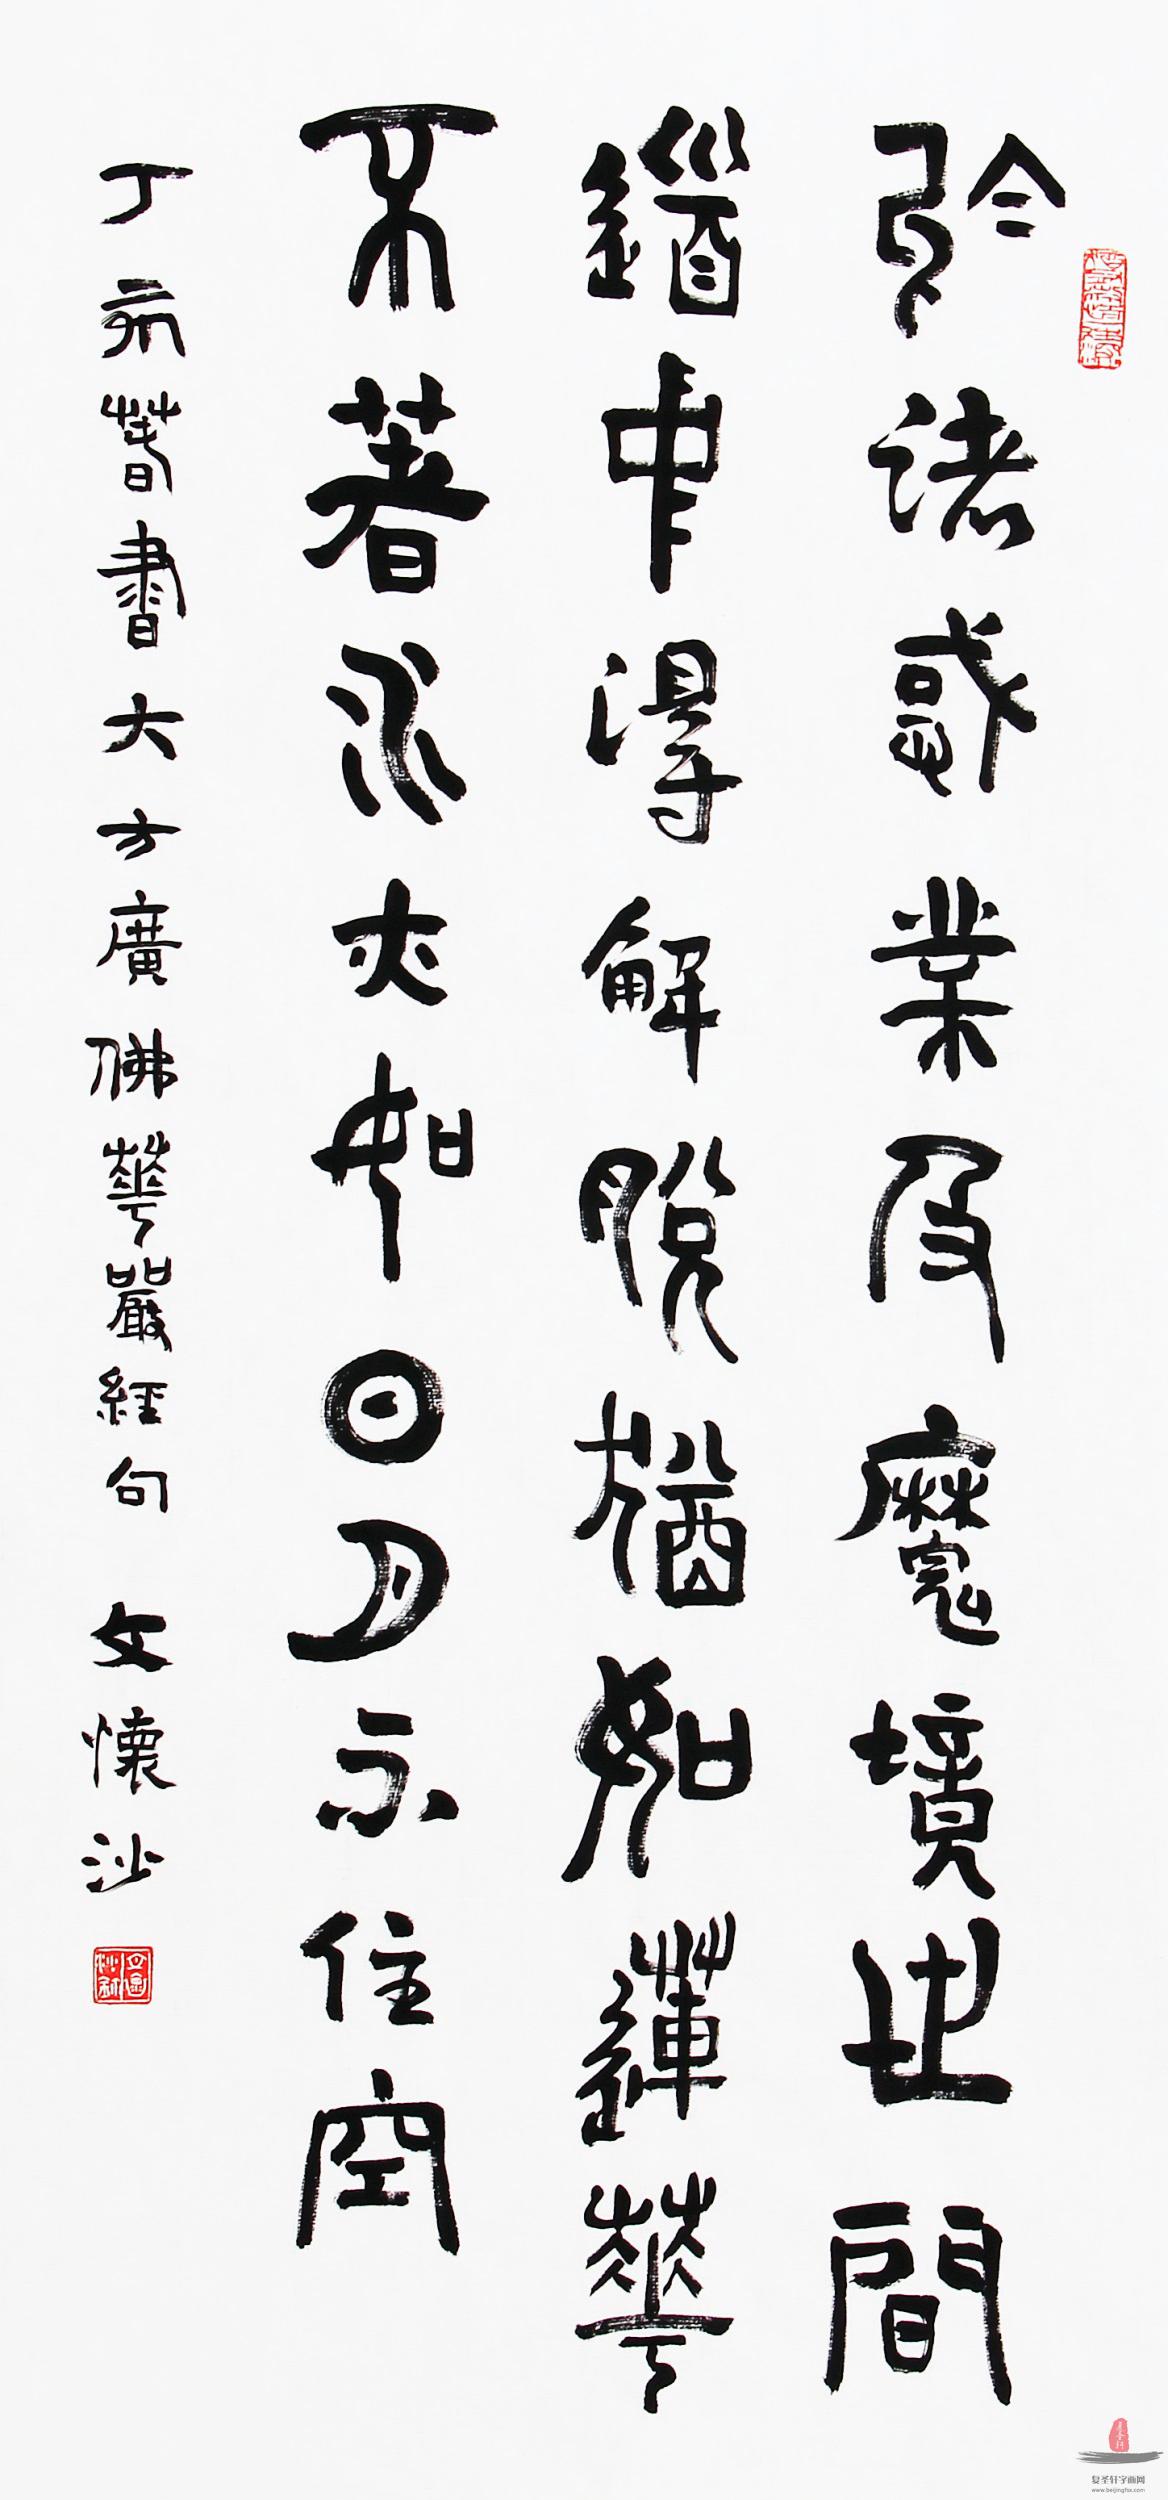 於諸惑業及魔境世間
道中得解脫猶如蓮華
不著水亦如日月不住空
丁亥春書大方廣佛華嚴經句 文懷沙
复圣轩字画网
www.beijingfsx.com